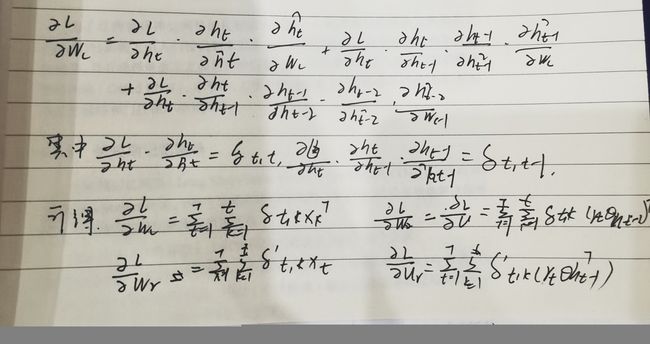 ∂L/∂W_c = ∂L/∂h_t · ∂h_t/∂h̃_t · ∂h̃_t/∂W_c + ∂L/∂h_t · ∂h_t/∂h_{t-1} · ∂h_{t-1}/∂h̃_{t-1} · ∂h̃_{t-1}/∂W_c
+ ∂L/∂h_t · ∂h_t/∂h_{t-1} · ∂h_{t-1}/∂h_{t-2} · ∂h_{t-2}/∂h̃_{t-2} · ∂h̃_{t-2}/∂W_{c-1}
其中 ∂L/∂h_t · ∂h_t/∂h̃_t = δ_{t,t}, ∂L/∂h_t · ∂h_t/∂h_{t-1} · ∂h_{t-1}/∂h̃_{t-1} = δ_{t,t-1}.
可得. ∂L/∂W_c = Σ_{t=1}^T Σ_{k=1}^t δ_{t,k} x_k^T = Σ_{t=1}^T Σ_{k=1}^t δ_{t,k}
∂L/∂W_r = Σ_{k=1}^T Σ_{k=1}^t δ'_{t,k} x_t ∂L/∂U_r = Σ_{t=1}^T Σ_{k=1}^t δ'_{t,k} (r_t ⊙ h_{t-1}^T)